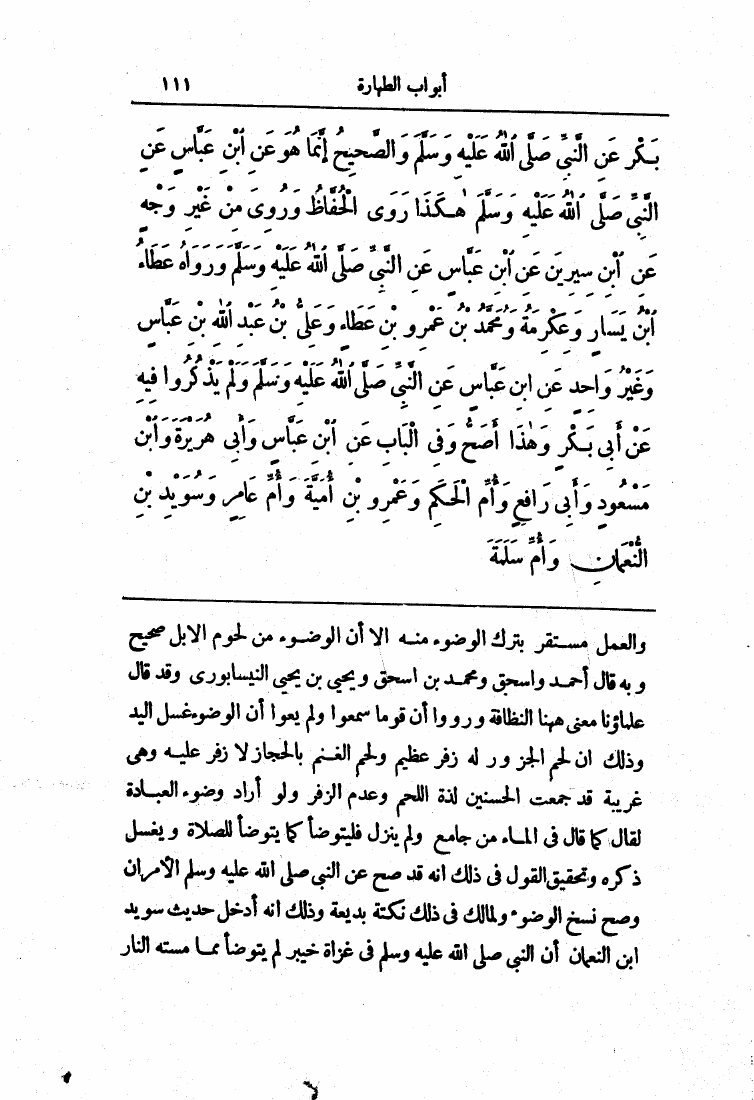 أبواب الطهارة ١١١
بَكْرٍ عَنِ النَّبِيِّ صَلَّى ٱللهُ عَلَيْهِ وَسَلَّمَ وَالصَّحِيحُ إِنَّمَا هُوَ عَنِ ٱبْنِ عَبَّاسٍ عَنِ
النَّبِيِّ صَلَّى ٱللهُ عَلَيْهِ وَسَلَّمَ هٰكَذَا رَوَى الْحُفَّاظُ وَرُوِىَ مِنْ غَيْرِ وَجْهٍ
عَنِ ٱبْنِ سِيرِينَ عَنِ ٱبْنِ عَبَّاسٍ عَنِ النَّبِيِّ صَلَّى ٱللهُ عَلَيْهِ وَسَلَّمَ وَرَوَاهُ عَطَاءُ
ٱبْنُ يَسَارٍ وَعِكْرِمَةُ وَمُحَمَّدُ بْنُ عَمْرِو بْنِ عَطَاءٍ وَعَلِىُّ بْنُ عَبْدِ ٱللهِ بْنِ عَبَّاسٍ
وَغَيْرُ وَاحِدٍ عَنِ ابنِ عَبَّاسٍ عَنِ النَّبِيِّ صَلَّى ٱللهُ عَلَيْهِ وَسَلَّمَ وَلَمْ يَذْكُرُوا فِيهِ
عَنْ أَبِى بَكْرٍ وَهٰذَا أَصَحُّ وَفِى الْبَابِ عَنِ ٱبْنِ عَبَّاسٍ وَأَبِى هُرَيْرَةَ وَٱبْنِ
مَسْعُودٍ وَأَبِى رَافِعٍ وَأُمِّ الْحَكَمِ وَعَمْرِو بْنِ أُمَيَّةَ وَأُمِّ عَامِرٍ وَسُوَيْدِ بْنِ
النُّعْمَانِ وَأُمِّ سَلَمَةَ
والعمل مستقر بترك الوضوء منه الا أن الوضوء من لحوم الابل صحيح
وبه قال أحمد واسحق ومحمد بن اسحق ويحيى بن يحيى النيسابورى وقد قال
علماؤنا معنى ههنا النظافة ورووا أن قوما سمعوا ولم يعوا أن الوضوء غسل اليد
وذلك ان لحم الجزور له زفر عظيم ولحم الغنم بالحجاز لا زفر عليه وهى
غريبة قد جمعت الحسنين لذة اللحم وعدم الزفر ولو أراد وضوء العبادة
لقال كما قال فى الماء من جامع ولم ينزل فليتوضأ كما يتوضأ للصلاة ويغسل
ذكره وتحقيق القول فى ذلك انه قد صح عن النبى صلى الله عليه وسلم الأمران
وصح نسخ الوضوء ولمالك فى ذلك نكتة بديعة وذلك انه أدخل حديث سويد
ابن النعمان أن النبى صلى الله عليه وسلم فى غزاة خيبر لم يتوضأ مما مسته النار